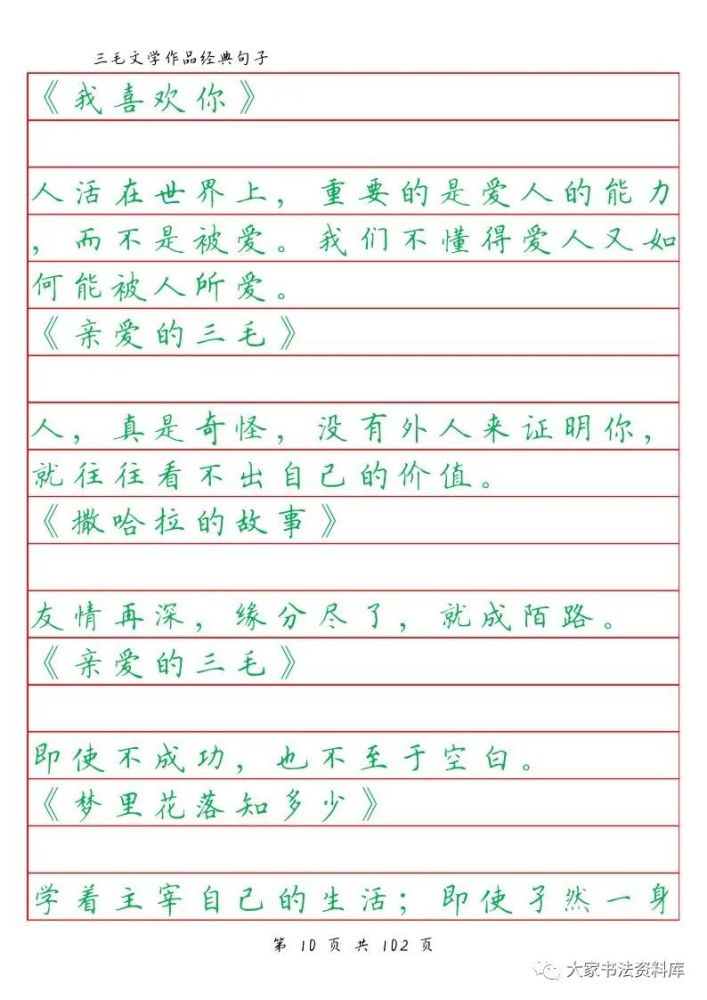 三毛文学作品经典句子
《我喜欢你》
人活在世界上，重要的是爱人的能力
，而不是被爱。我们不懂得爱人又如
何能被人所爱。
《亲爱的三毛》
人，真是奇怪，没有外人来证明你，
就往往看不出自己的价值。
《撒哈拉的故事》
友情再深，缘分尽了，就成陌路。
《亲爱的三毛》
即使不成功，也不至于空白。
《梦里花落知多少》
学着主宰自己的生活；即使孑然一身
第 10 页 共 102 页
大家书法资料库